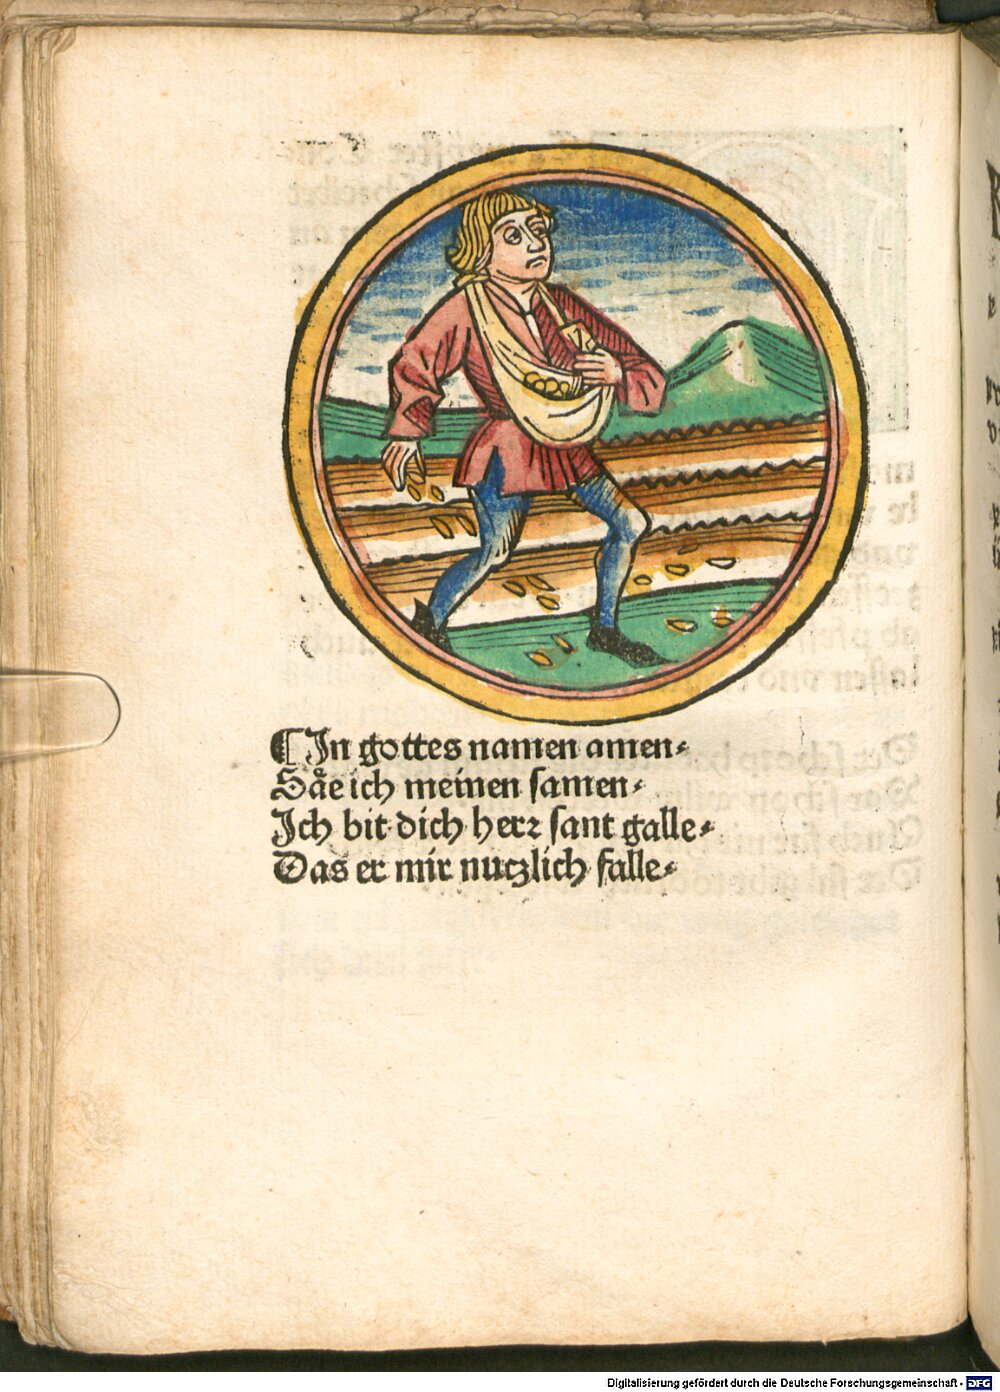 ¶ In gottes namen amen⸗
Såe ich meinen samen⸗
Jch bit dich herꝛ sant galle⸗
Das er mir nutzlich falle⸗
Digitalisierung gefördert durch die Deutsche Forschungsgemeinschaft - DFG